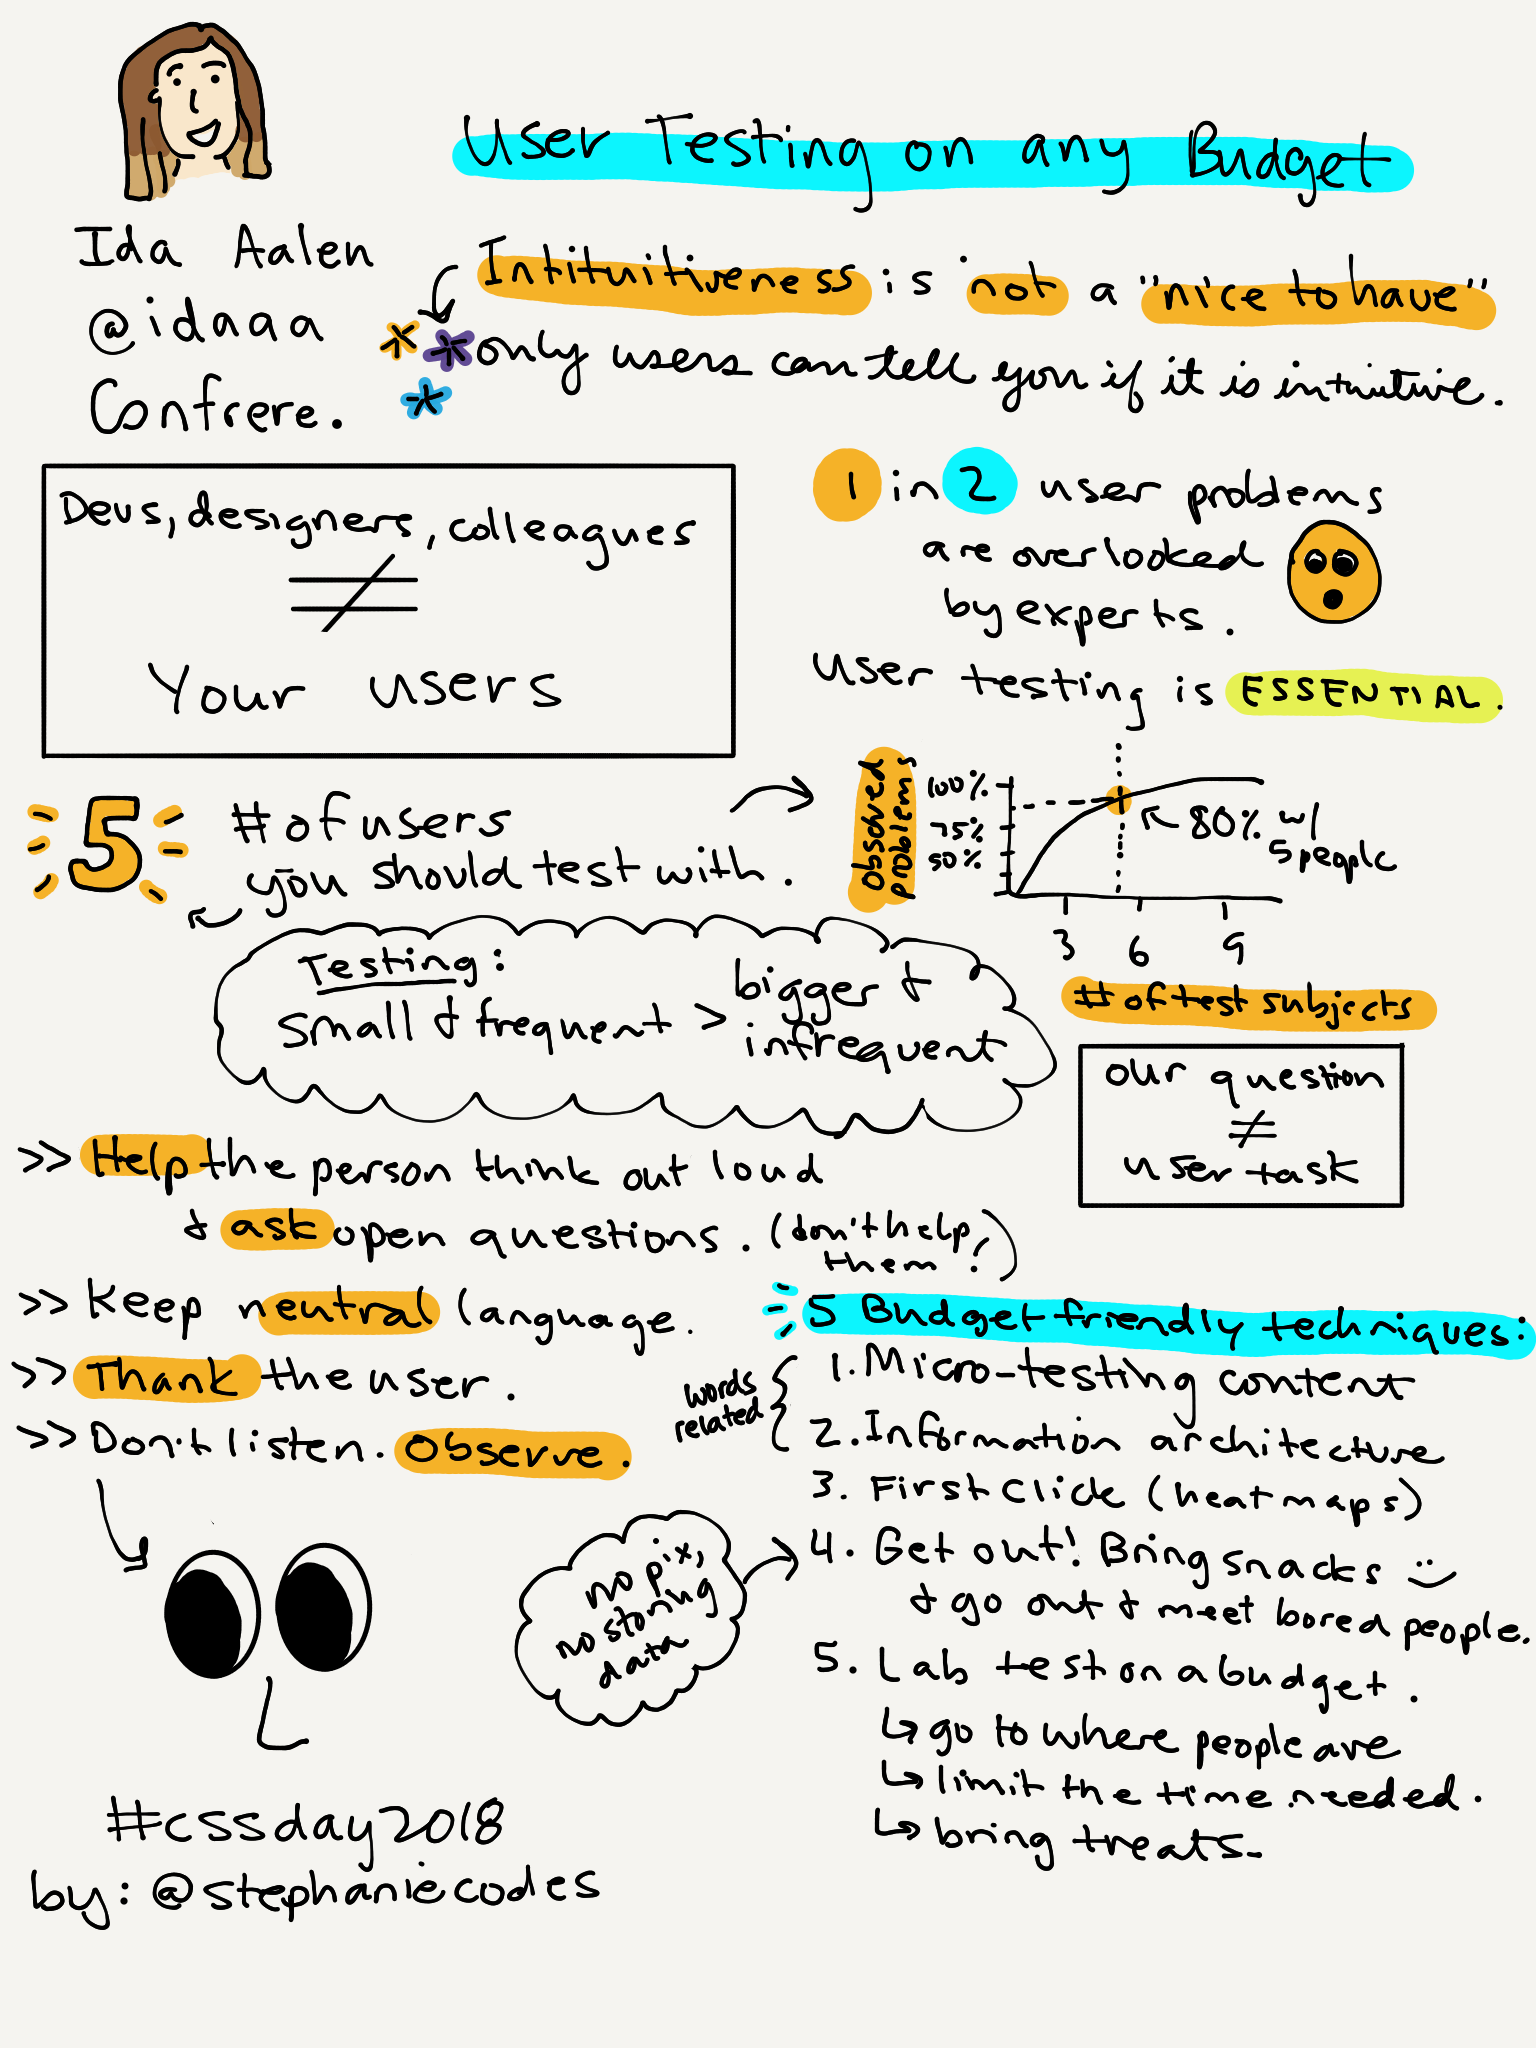 User Testing on any Budget
Ida Aalen
@idaaa
Confrere.
Intituitiveness is not a "nice to have"
only users can tell you if it is intuitive.
Devs, designers, colleagues
≠
Your users
1 in 2 user problems
are overlooked
by experts.
User testing is ESSENTIAL.
5 # of users
you should test with.
observed
problems
100%
75%
50%
80% w/
5 people
3 6 9
# of test subjects
Testing:
small & frequent > bigger &
infrequent
our question
≠
user task
>> Help the person think out loud
& ask open questions. (don't help
them!)
>> Keep neutral language.
>> Thank the user.
>> Don't listen. Observe.
5 Budget friendly techniques:
words
related
1. Micro-testing content
2. Information architecture
3. First Click (heatmaps)
4. Get out! Bring snacks
& go out & meet bored people.
no pix,
no storing
data
5. Lab test on a budget.
↳ go to where people are
↳ limit the time needed.
↳ bring treats.
#cssday2018
by: @stephaniecodes